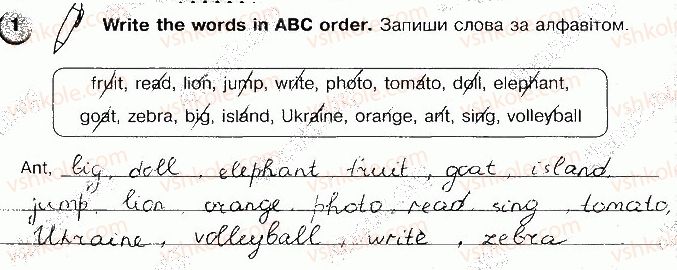 1 Write the words in ABC order. Запиши слова за алфавітом.
fruit, read, lion, jump, write, photo, tomato, doll, elephant,
goat, zebra, big, island, Ukraine, orange, ant, sing, volleyball
Ant, big, doll, elephant fruit, goat, island,
jump, lion, orange, photo, read, sing, tomato,
Ukraine, volleyball, write, zebra